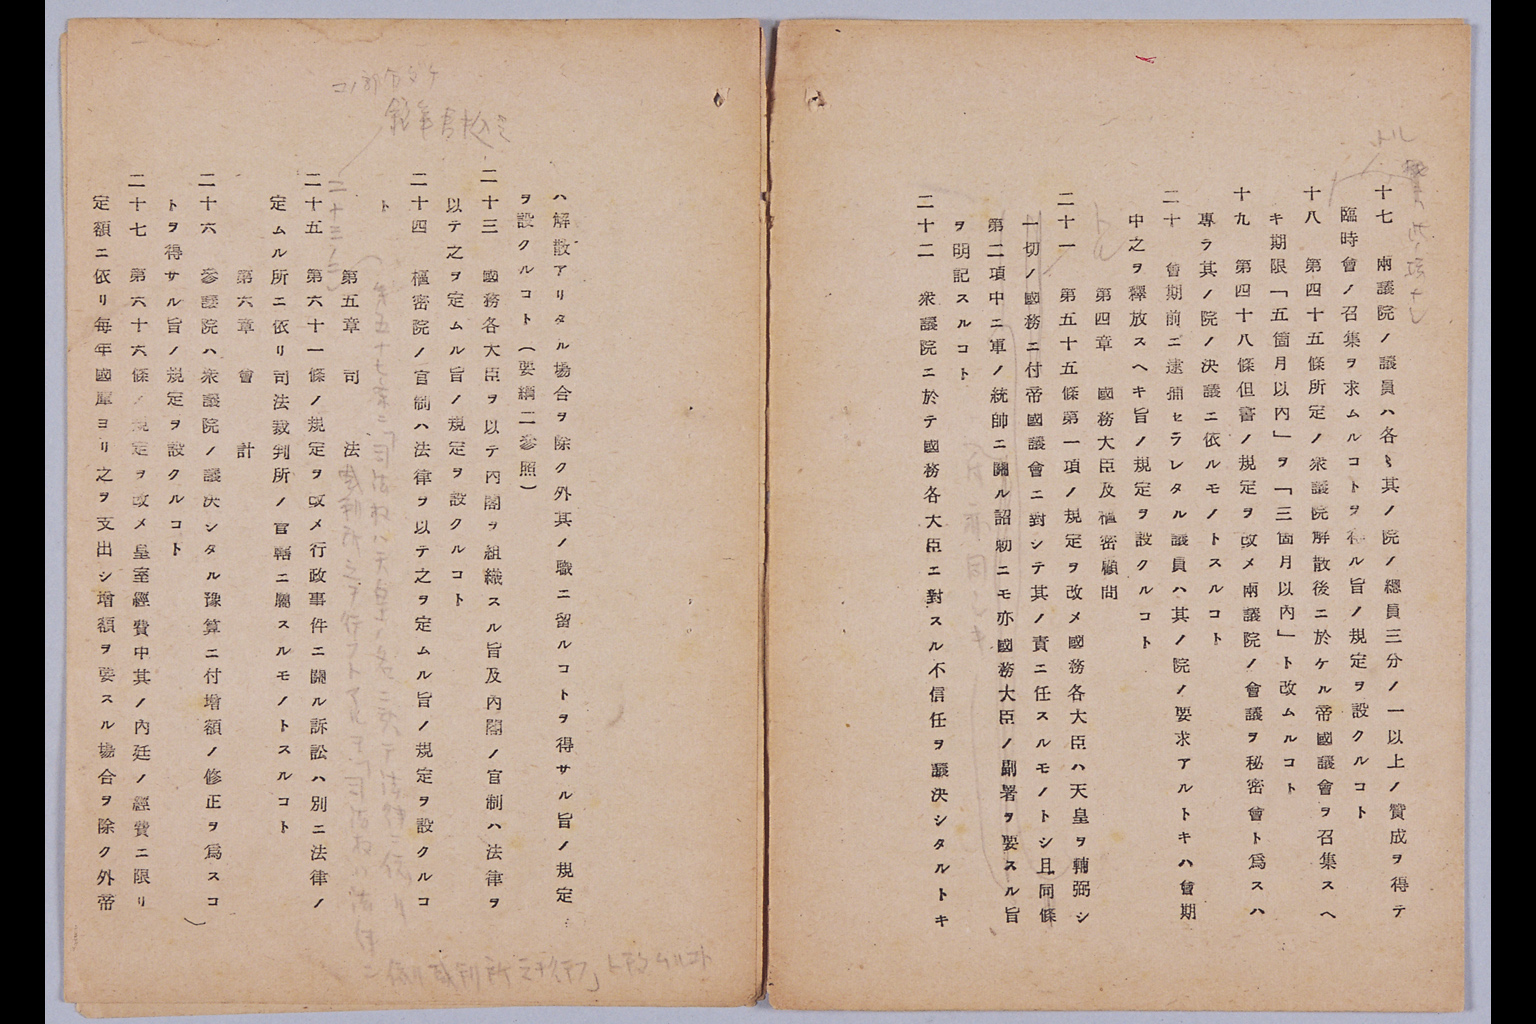 十七　兩議院ノ議員ハ各〻其ノ院ノ總員三分ノ一以上ノ贊成ヲ得テ
臨時會ノ召集ヲ求ムルコトヲ得ル旨ノ規定ヲ設クルコト
十八　第四十五條所定ノ衆議院解散後ニ於ケル帝國議會ヲ召集スヘ
キ期限「五箇月以內」ヲ「三箇月以內」ト改ムルコト
十九　第四十八條但書ノ規定ヲ改メ兩議院ノ會議ヲ秘密會ト爲スハ
專ラ其ノ院ノ決議ニ依ルモノトスルコト
二十　會期前ニ逮捕セラレタル議員ハ其ノ院ノ要求アルトキハ會期
中之ヲ釋放スヘキ旨ノ規定ヲ設クルコト
トル
第四章　國務大臣及樞密顧問
二十一　第五十五條第一項ノ規定ヲ改メ國務各大臣ハ天皇ヲ輔弼シ
一切ノ國務ニ付帝國議會ニ對シテ其ノ責ニ任スルモノトシ且同條
第二項中ニ軍ノ統帥ニ關ル詔勅ニモ亦國務大臣ノ副署ヲ要スル旨
ヲ明記スルコト
二十二　衆議院ニ於テ國務各大臣ニ對スル不信任ヲ議決シタルトキ
ハ解散アリタル場合ヲ除ク外其ノ職ニ留ルコトヲ得サル旨ノ規定
ヲ設クルコト（要綱二參照）
二十三　國務各大臣ヲ以テ內閣ヲ組織スル旨及內閣ノ官制ハ法律ヲ
以テ之ヲ定ムル旨ノ規定ヲ設クルコト
二十四　樞密院ノ官制ハ法律ヲ以テ之ヲ定ムル旨ノ規定ヲ設クルコ
ト
コノ部分タケ
二十三ノ二
第五十七条ニ「司法権ハ天皇ノ名ニ於テ法律ニ依リ
裁判所之ヲ行フトアルヲ「司法権ハ法律
ニ依リ裁判所之ヲ行フ」ト改ムルコト
第五章　司　法
二十五　第六十一條ノ規定ヲ改メ行政事件ニ關ル訴訟ハ別ニ法律ノ
定ムル所ニ依リ司法裁判所ノ官轄ニ屬スルモノトスルコト
第六章　會　計
二十六　參議院ハ衆議院ノ議決シタル豫算ニ付增額ノ修正ヲ爲スコ
トヲ得サル旨ノ規定ヲ設クルコト
二十七　第六十六條ノ規定ヲ改メ皇室經費中其ノ內廷ノ經費ニ限リ
定額ニ依リ每年國庫ヨリ之ヲ支出シ增額ヲ要スル場合ヲ除ク外帝